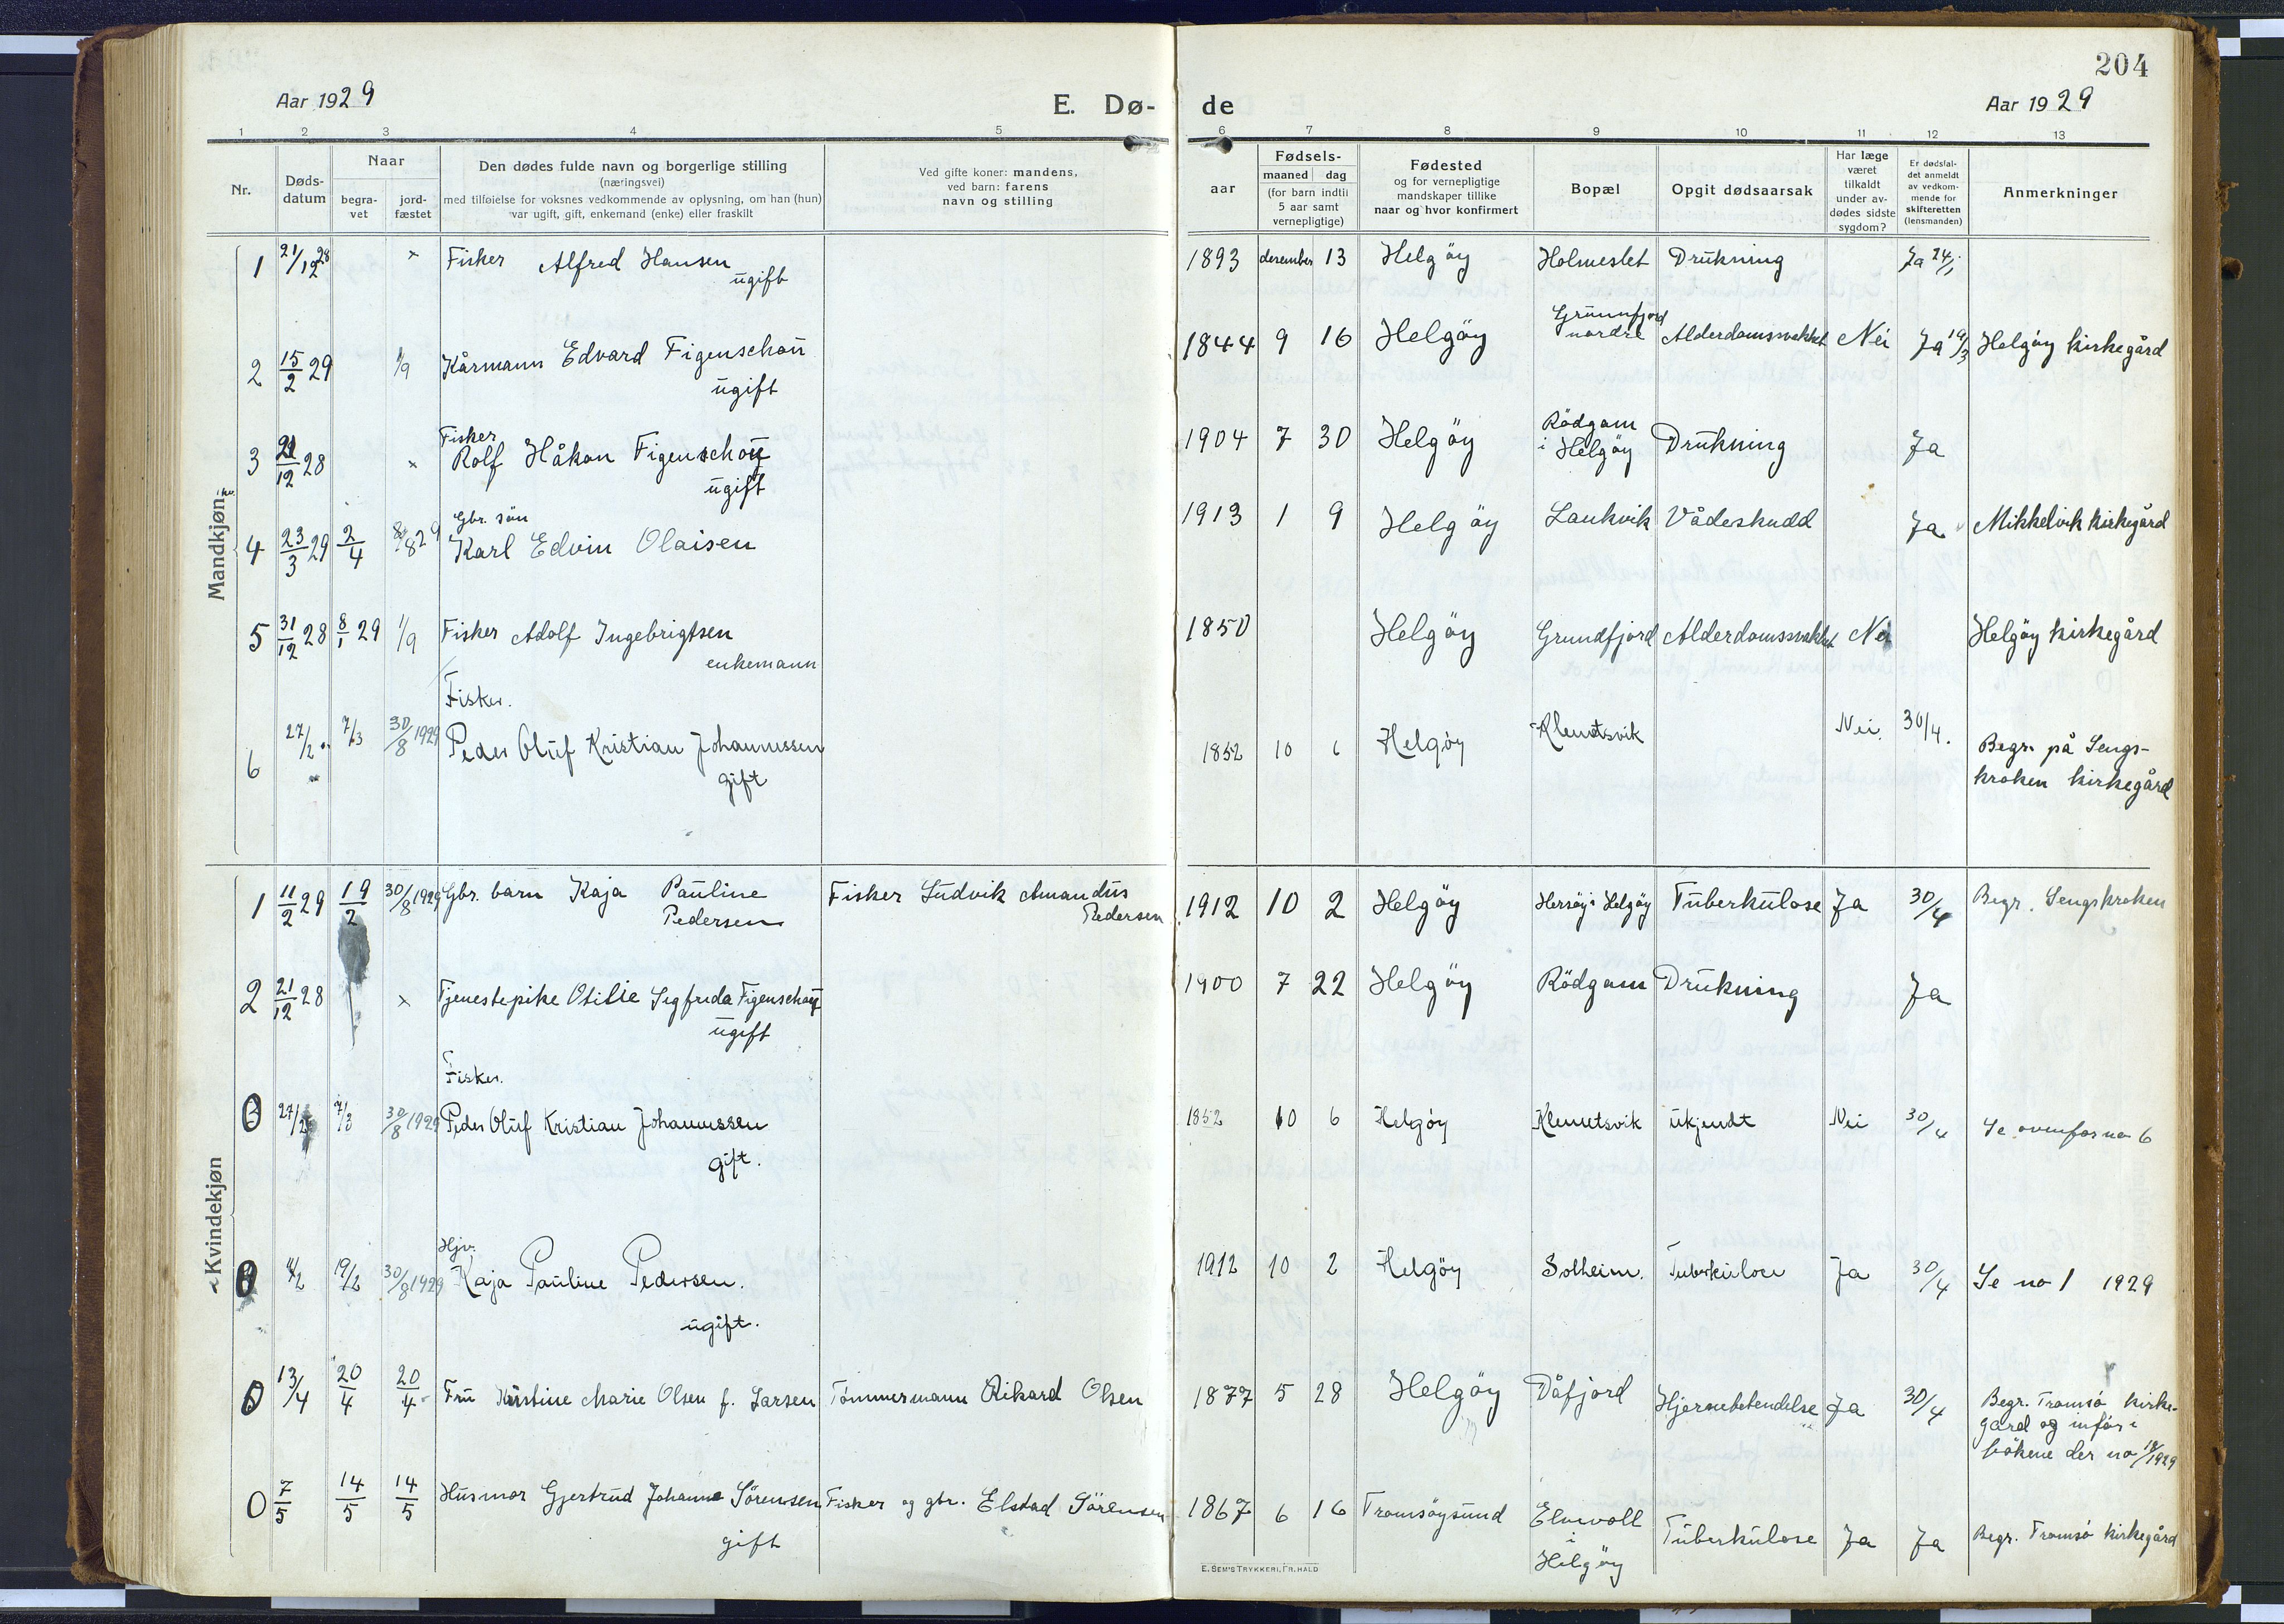 204
Aar 1929 E. Dø- de Aar 1929
1 2 3 4 5 6 7 8 9 10 11 12 13
Nr. Døds-datum Naar begra-vet jord-fæstet
Den dødes fulde navn og borgerlige stilling
(næringsvei)
med tilføielse for voksnes vedkommende av oplysning, om han (hun)
var ugift, gift, enkemand (enke) eller fraskilt
Ved gifte koner: mandens,
ved barn: farens
navn og stilling
Fødsels-
aar maaned dag
(for barn indtil
5 aar samt
vernepligtige)
Fødested
og for vernepligtige
mandskaper tillike
naar og hvor konfirmert
Bopæl
Opgit dødsaarsak
Har læge
været
tilkaldt
under av-
dødes sidste
sygdom?
Er dødsfal-
det anmeldt
av vedkom-
mende for
skifteretten
(lensmanden)
Anmerkninger
Mandkjøn
1 21/12 28 × Fisker Alfred Hansen 1893 desember 13 Helgöy Holmeslet Drukning Ja 24/1
ugift
2 15/2 29 1/9 Kårmann Edvard Figenschou 1844 9 16 Helgöy Grunnfjord nordre Alderdomssvakhet Nei Ja 19/3 Helgöy kirkegård
ugift
Fisker
3 21/12 28 × Rolf Håkon Figenschou 1904 7 30 Helgöy Rödgam i Helgöy Drukning Ja
ugift
Gbr. sön
4 23/3 29 2/4 8/8 29 Karl Edvin Olaisen 1913 1 9 Helgöy Laukvik Vådeskudd Ja Mikkelvik kirkegård
5 31/12 28 8/1 29 1/9 Fisker Adolf Ingebrigtsen 1850 Helgöy Grundfjord Alderdomssvakhet Nei Helgöy kirkegård
enkemann
Fisker.
6 27/2 7/3 30/8 1929 Peder Oluf Kristian Johannessen 1852 10 6 Helgöy Klemetsvik Nei. 30/4. Begr. på Sengs-
gift kroken kirkegård
Kvindekjøn
1 11/2 29 19/2 30/8 1929 Gbr. barn Kaja Pauline Fisker Ludvik Amandus 1912 10 2 Helgöy Hersöy i Helgöy Tuberkulose Ja 30/4 Begr. Sengskroken
Pedersen Pedersen
2 21/12 28 × Tjenestepike Otilie Sigfrida Figenschou 1900 7 22 Helgöy Rödgam Drukning Ja
ugift
Fisker.
0 27/2 7/3 30/8 1929 Peder Oluf Kristian Johannessen 1852 10 6 Helgöy Klemetsvik ukjendt Nei 30/4 Se ovenfor no 6
gift.
Hjv.
0 11/2 19/2 30/8 1929 Kaja Pauline Pedersen. 1912 10 2 Helgöy Solheim. Tuberkulose Ja 30/4 Se no 1 1929
ugift.
0 13/4 20/4 20/4 Fru Kristine Marie Olsen f. Larsen Tömmermann Rikard Olsen 1877 5 28 Helgöy Dåfjord Hjernebetendelse Ja 30/4 Begr. Tromsö kirke-
gård og inför i
bökene der no 18/1929
0 7/5 14/5 14/5 Husmor Gjertrud Johanne Sörensen Fisker og gbr. Elstad Sörensen 1867 6 16 Tromsöysund Elvevoll i Helgöy Tuberkulose Ja Ja Begr. Tromsö kirkegård
gift
E. SEM'S TRYKKERI, FR. HALD